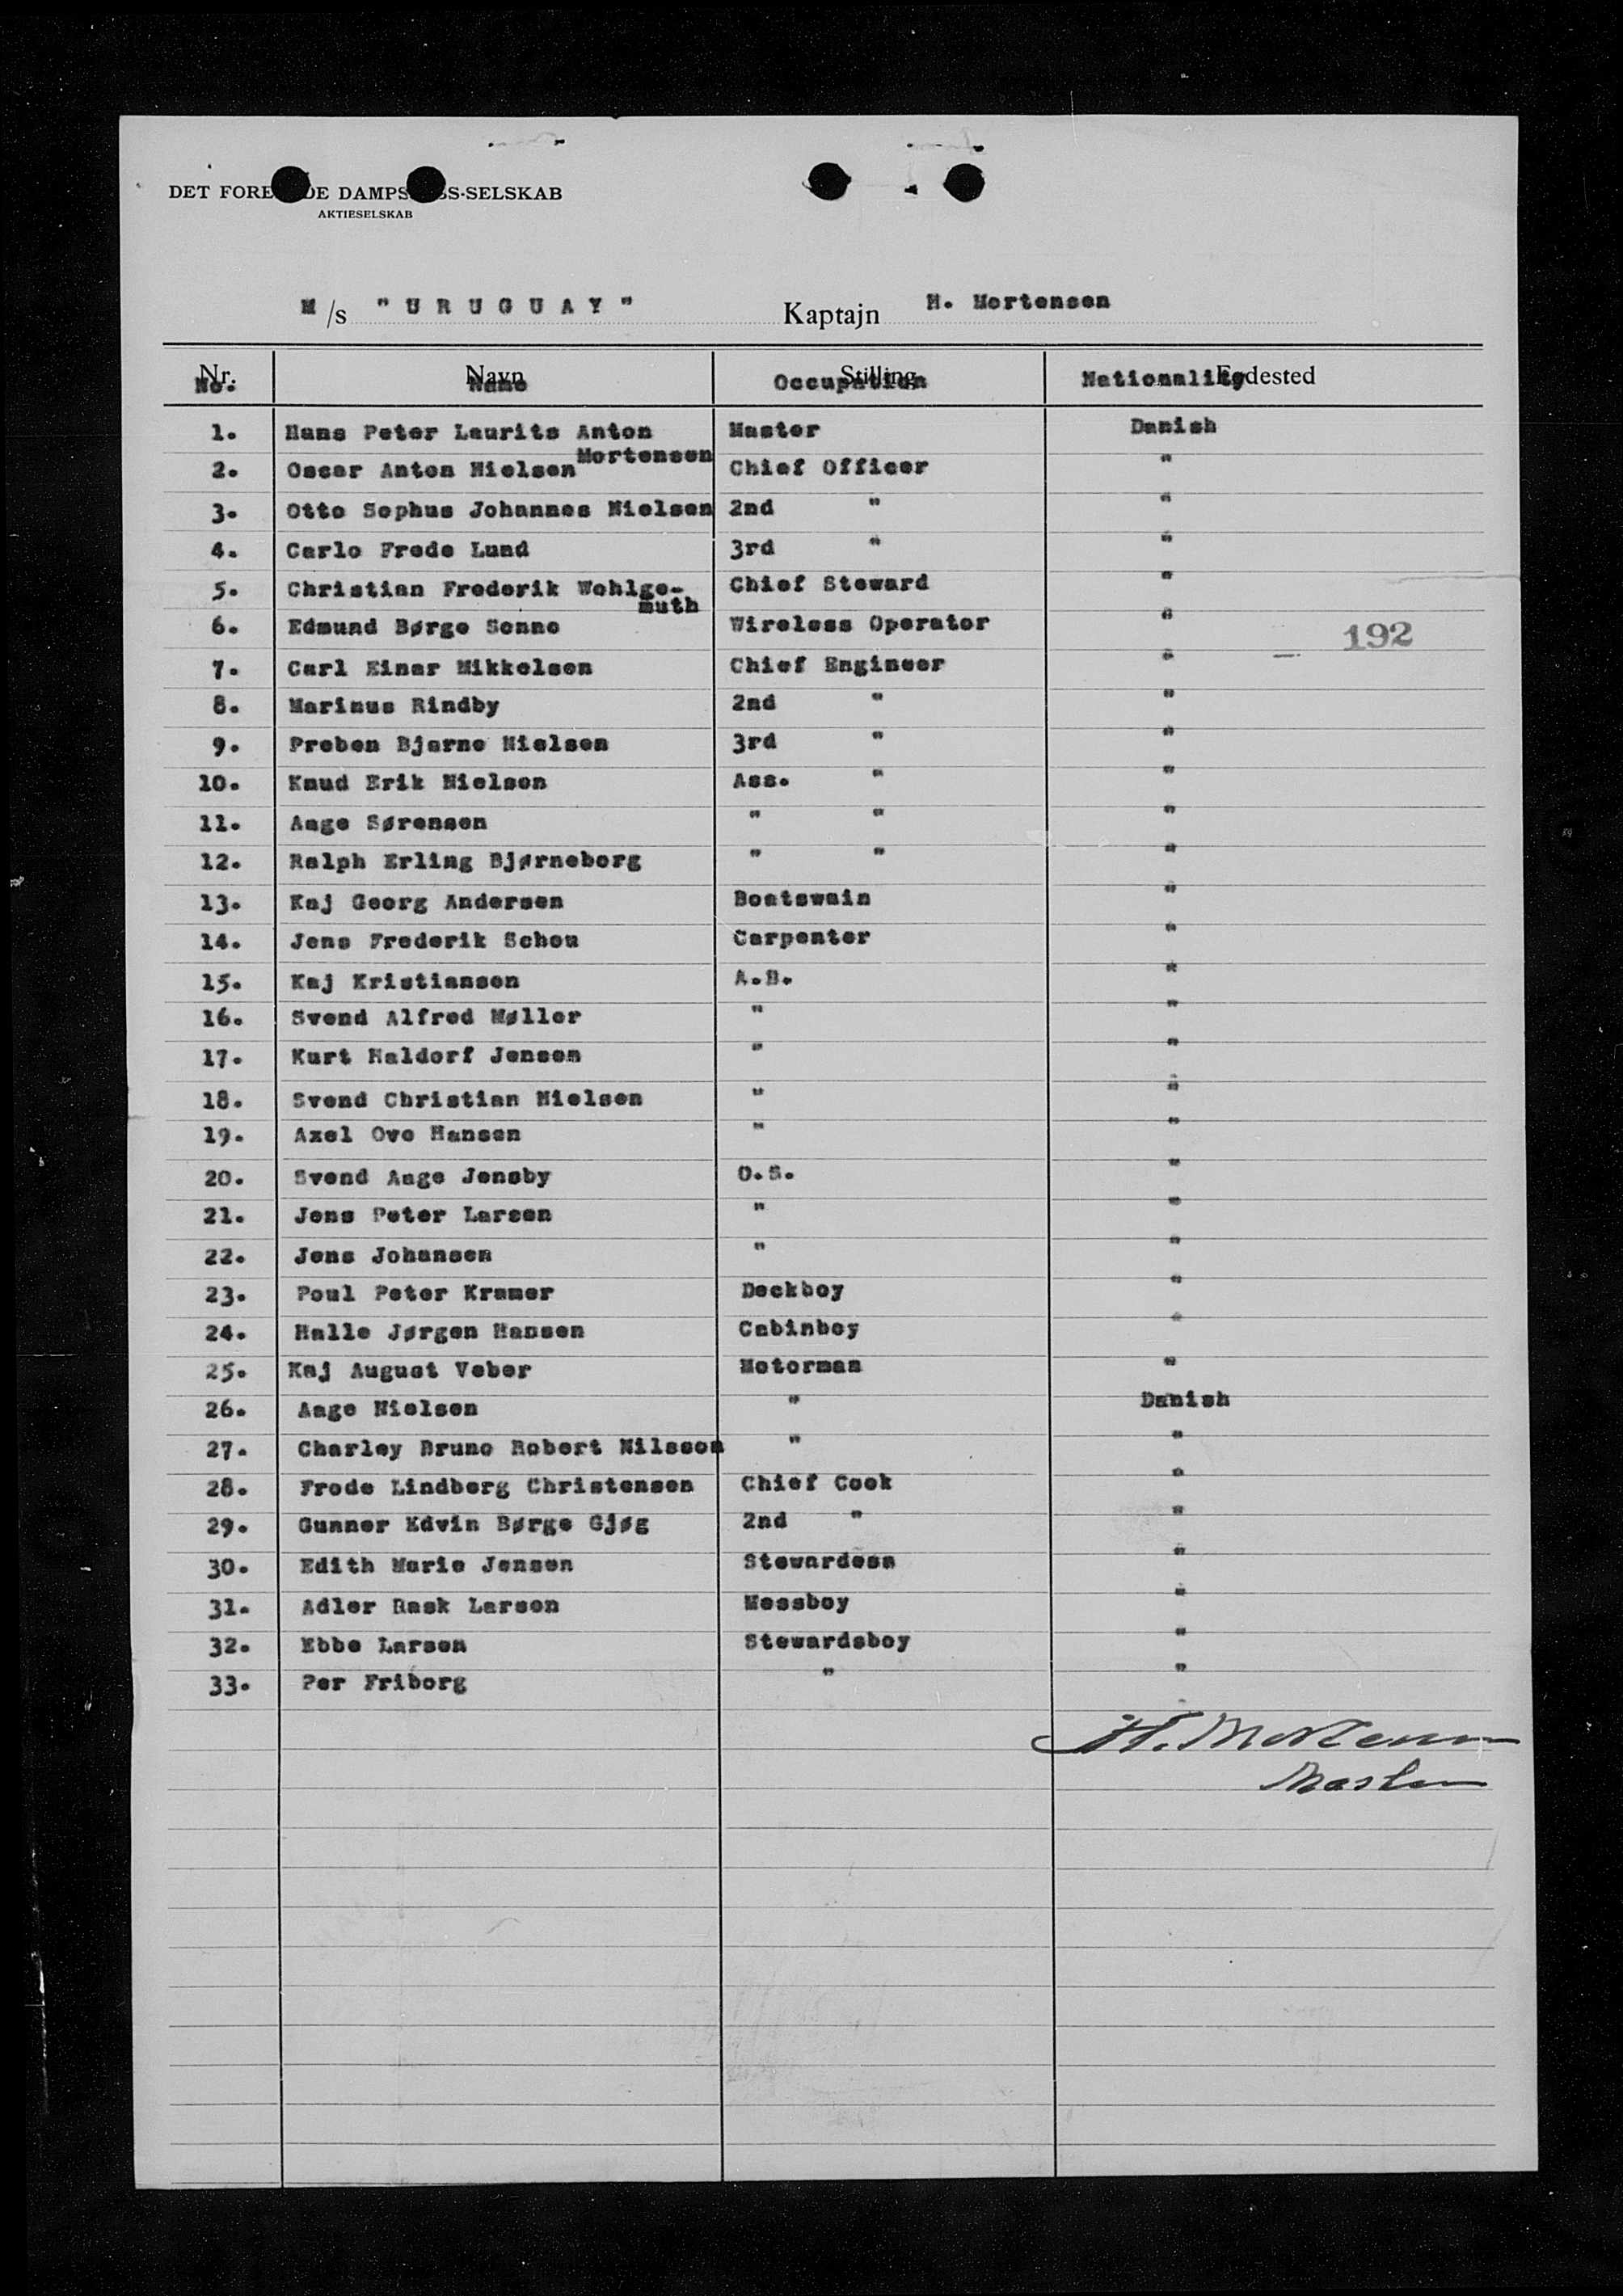 DET FORE DE DAMPS BS-SELSKAB
AKTIESELSKAB
M/s "URUGUAY" Kaptajn H. Mortensen
Nr. Navn Stilling Fødested
No. Name Occupation Nationality
1. Hans Peter Laurits Anton Mortensen Master Danish
2. Oscar Anton Nielsen Chief Officer "
3. Otto Sophus Johannes Nielsen 2nd " "
4. Carlo Frede Lund 3rd " "
5. Christian Frederik Wohlge- Chief Steward "
muth
6. Edmund Børge Sonne Wireless Operator "
192
7. Carl Einar Mikkelsen Chief Engineer "
8. Marinus Rindby 2nd " "
9. Preben Bjarne Nielsen 3rd " "
10. Knud Erik Nielsen Ass. " "
11. Aage Sørensen " " "
12. Ralph Erling Bjørneborg " " "
13. Kaj Georg Andersen Boatswain "
14. Jens Frederik Schou Carpenter "
15. Kaj Kristiansen A.B. "
16. Svend Alfred Møller " "
17. Kurt Haldorf Jensen " "
18. Svend Christian Nielsen " "
19. Axel Ove Hansen " "
20. Svend Aage Jensby O.S. "
21. Jens Peter Larsen " "
22. Jens Johansen " "
23. Poul Peter Kramer Deckboy "
24. Halle Jørgen Hansen Cabinboy "
25. Kaj August Veber Motorman "
26. Aage Nielsen " Danish
27. Charley Bruno Robert Nilsson " "
28. Frode Lindberg Christensen Chief Cook "
29. Gunner Edvin Børge Gjøg 2nd " "
30. Edith Marie Jensen Stewardess "
31. Adler Rask Larsen Messboy "
32. Ebbe Larsen Stewardsboy "
33. Per Friborg " "
H. Mortensen
Master